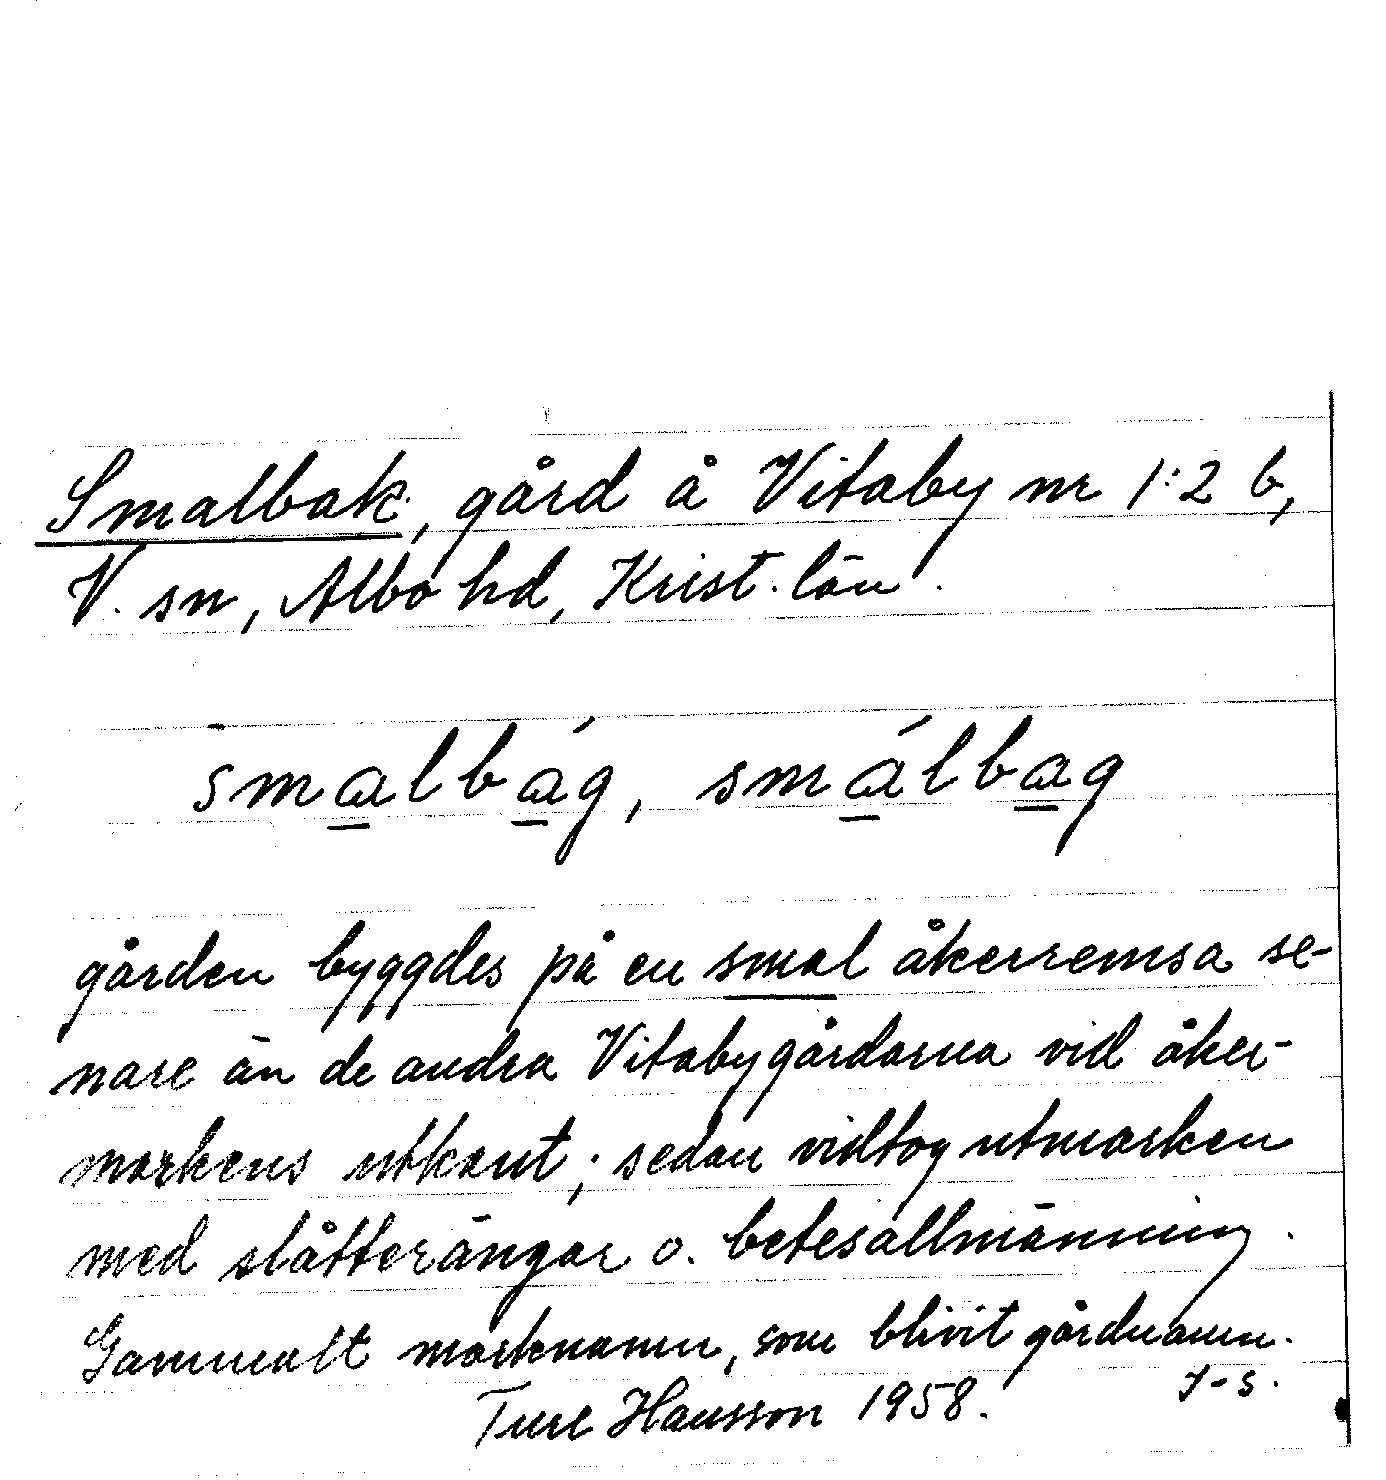 Smalbak, gård å Vitaby nr 1:2 b,
V. sn, Albo hd, Krist. län.
smalbág, smálbag
gården byggdes på en smal åkerremsa se-
nare än de andra Vitabygårdarna vid åker-
markens utkant; sedan vidtog utmarken
med slåtterängar o. betesallmänning.
Gammalt marknamn, som blivit gårdnamn.
Ture Hansson 1958.